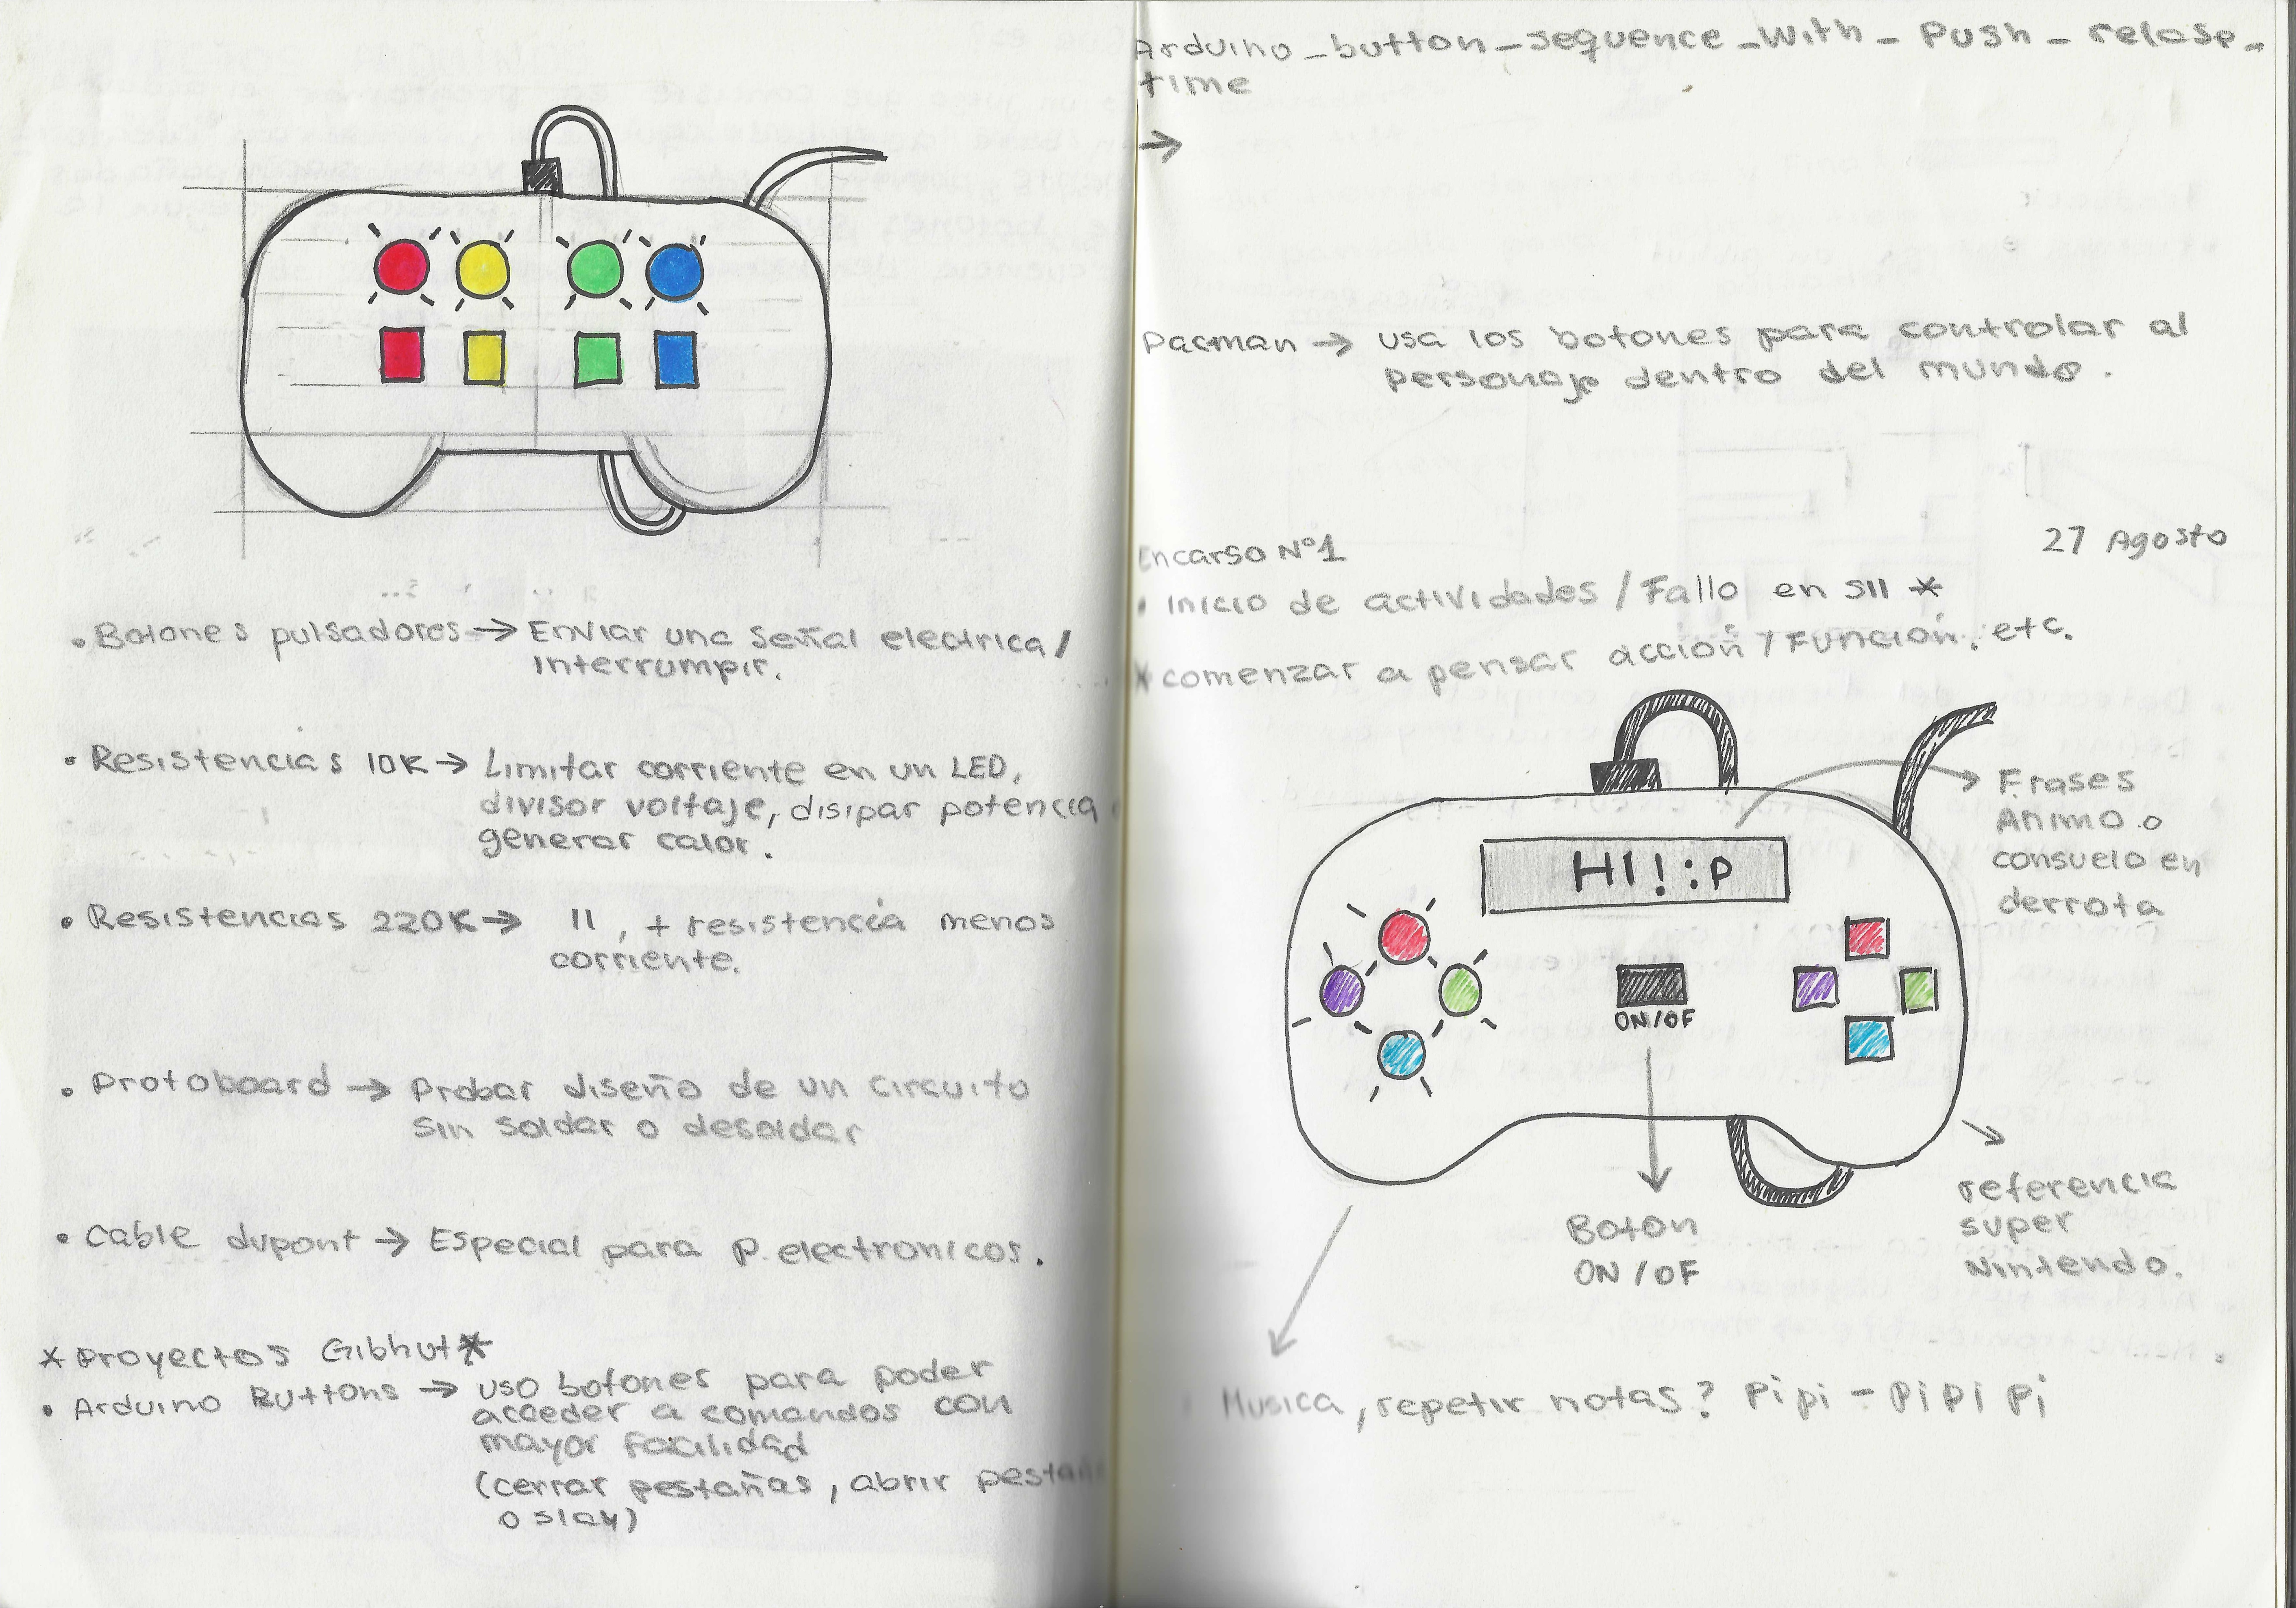 • Botones pulsadores → Enviar una señal electrica /
interrumpir.
• Resistencias 10K → Limitar corriente en un LED,
divisor voltaje, disipar potencia
generar calor.
• Resistencias 220K → 11, + resistencia menos
corriente.
• Protoboard → Probar diseño de un circuito
sin soldar o desoldar
• Cable dupont → Especial para p. electronicos.
* Proyectos Gibhut *
• Arduino Buttons → uso botones para poder
acceder a comandos con
mayor facilidad
(cerrar pestañas, abrir
o slay)
Arduino_button_sequence_With_Push_relase_
time
→
Pacman → usa los botones para controlar al
personaje dentro del mundo.
Encargo N°1
27 Agosto
• Inicio de actividades / Fallo en SII *
* comenzar a pensar acción / Función, etc.
Frases
Animo o
consuelo en
derrota
HI! :P
ON/OF
Boton
ON/OF
referencia
super
Nintendo.
Musica, repetir notas? Pipi - PiPi Pi